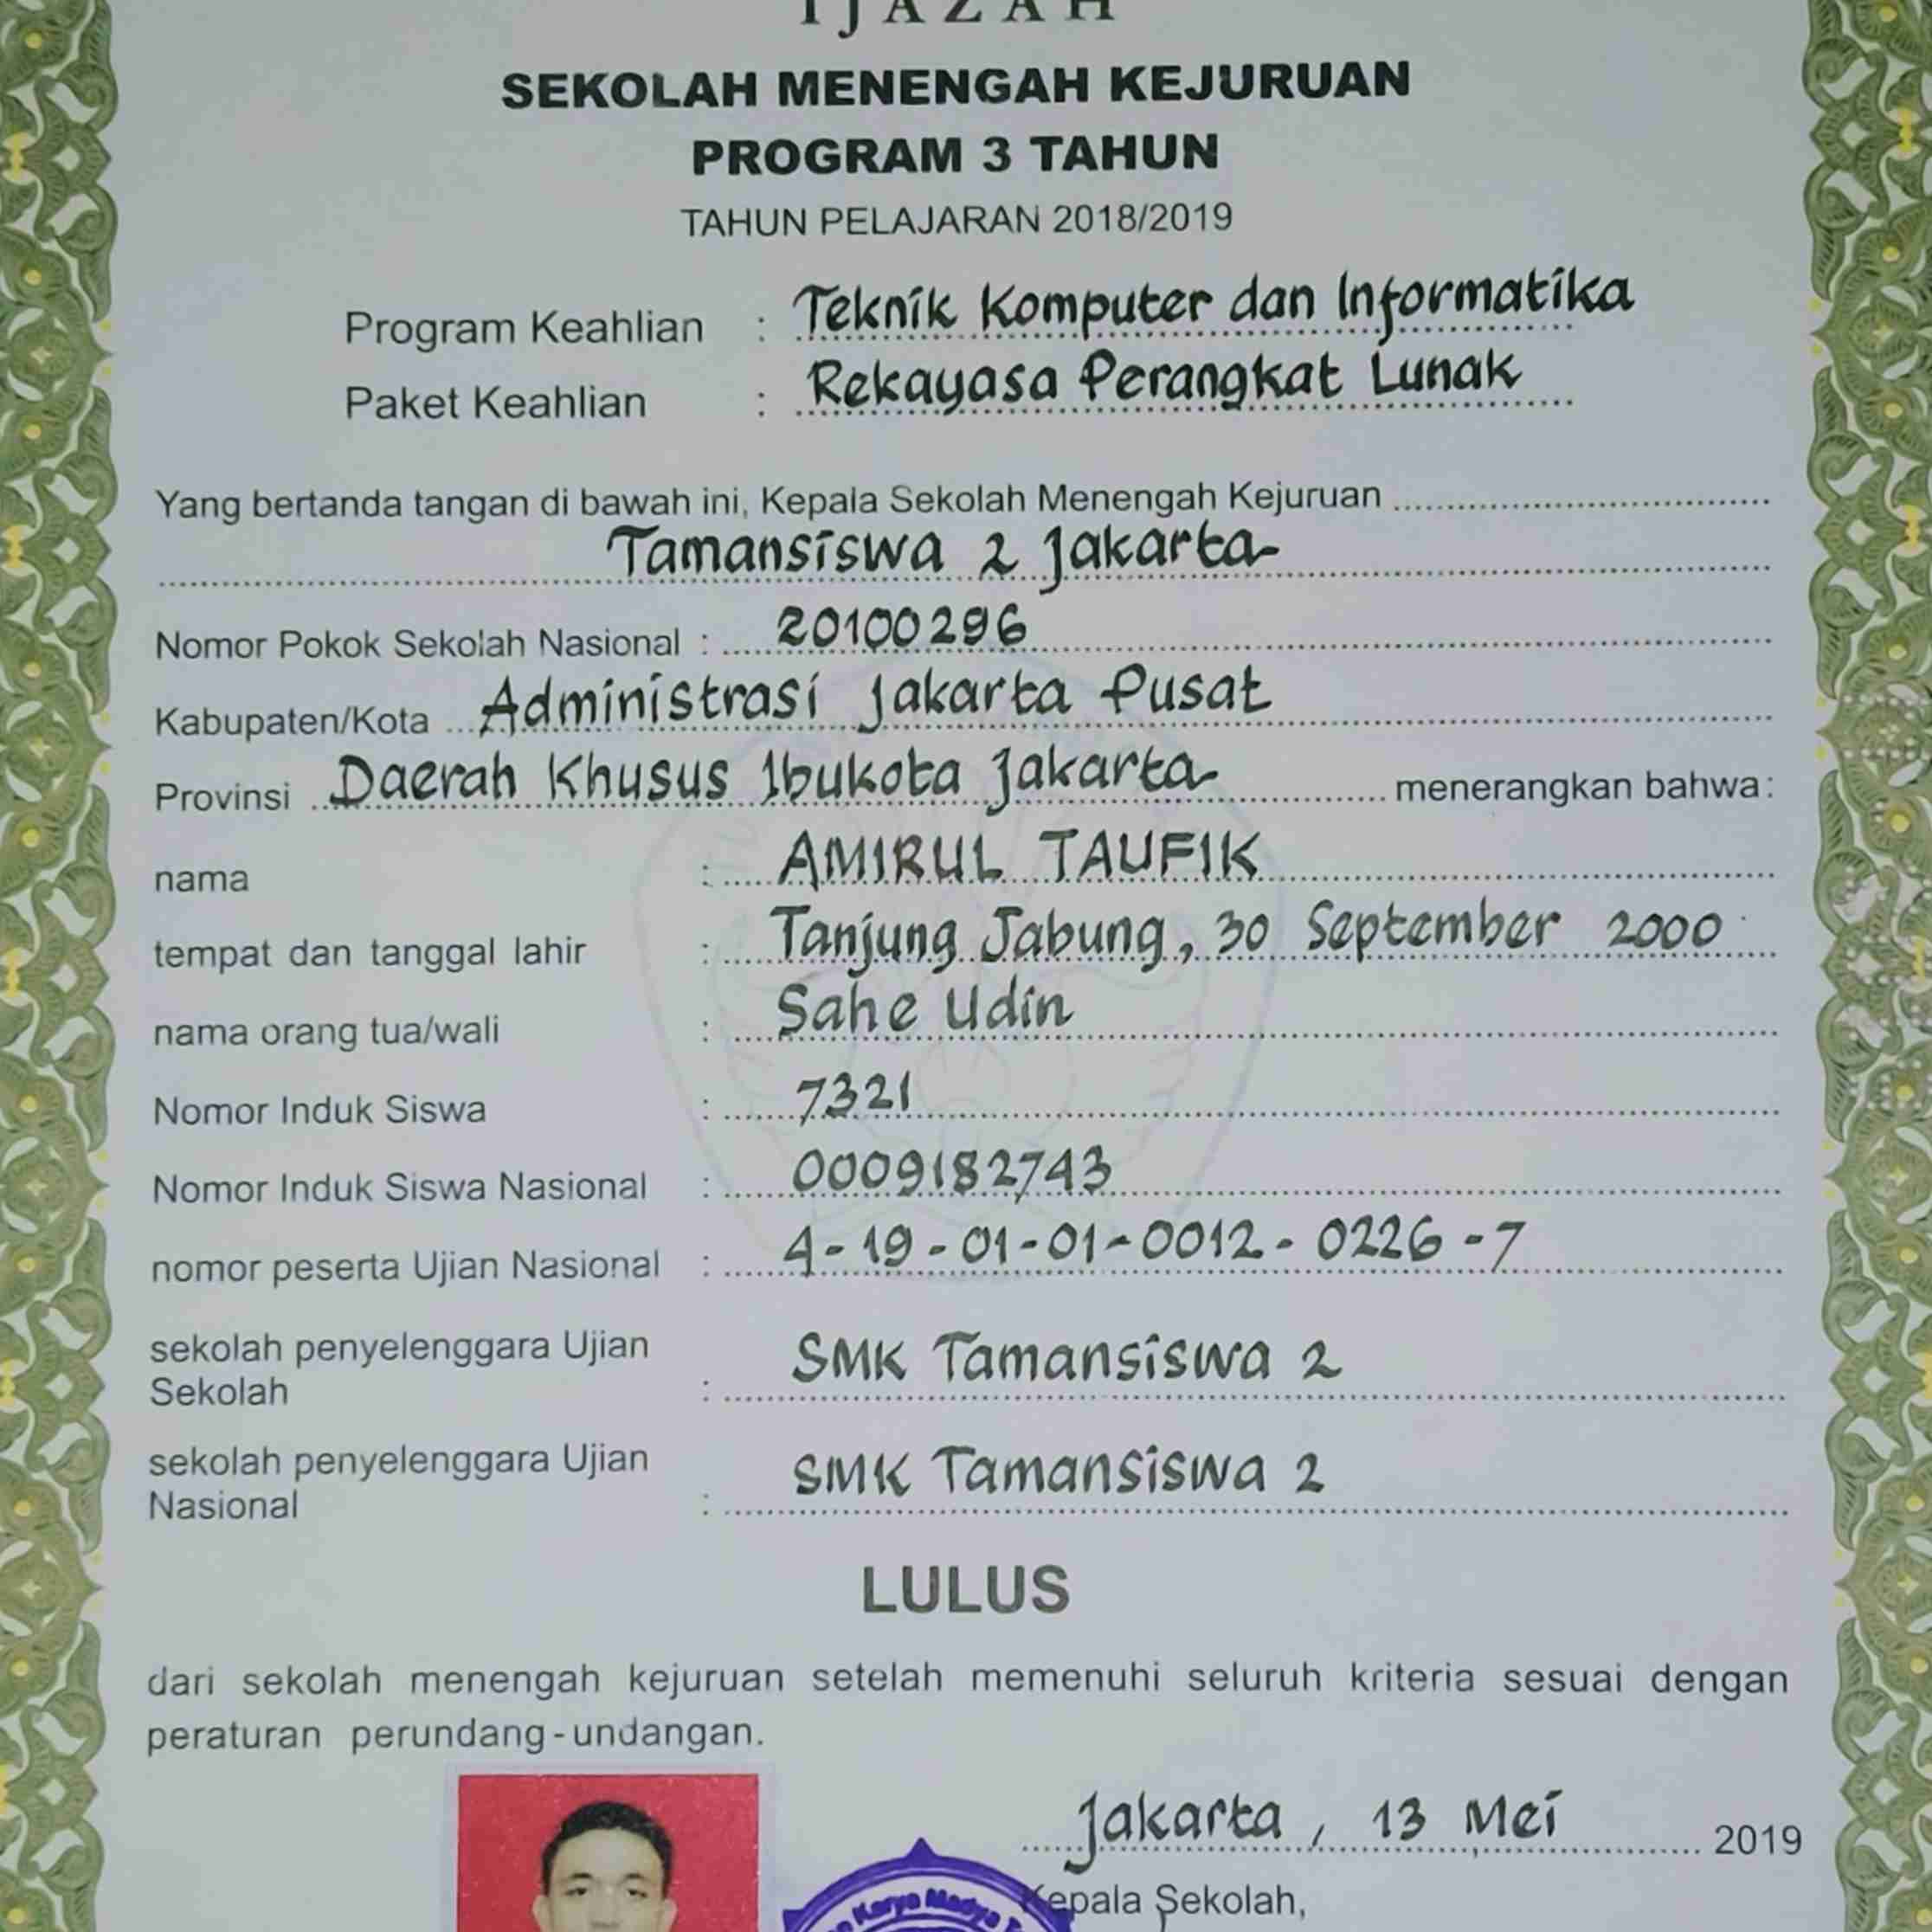 IJAZAH
SEKOLAH MENENGAH KEJURUAN
PROGRAM 3 TAHUN
TAHUN PELAJARAN 2018/2019
Program Keahlian : Teknik Komputer dan Informatika
Paket Keahlian : Rekayasa Perangkat Lunak
Yang bertanda tangan di bawah ini, Kepala Sekolah Menengah Kejuruan
Tamansiswa 2 Jakarta
Nomor Pokok Sekolah Nasional : 20100296
Kabupaten/Kota Administrasi Jakarta Pusat
Provinsi Daerah Khusus Ibukota Jakarta menerangkan bahwa:
nama : AMIRUL TAUFIK
tempat dan tanggal lahir : Tanjung Jabung, 30 September 2000
nama orang tua/wali : Sahe Udin
Nomor Induk Siswa : 7321
Nomor Induk Siswa Nasional : 0009182743
nomor peserta Ujian Nasional : 4-19-01-01-0012-0226-7
sekolah penyelenggara Ujian
Sekolah : SMK Tamansiswa 2
sekolah penyelenggara Ujian
Nasional : SMK Tamansiswa 2
LULUS
dari sekolah menengah kejuruan setelah memenuhi seluruh kriteria sesuai dengan
peraturan perundang-undangan.
Jakarta, 13 Mei 2019
Kepala Sekolah,
Karya Madya